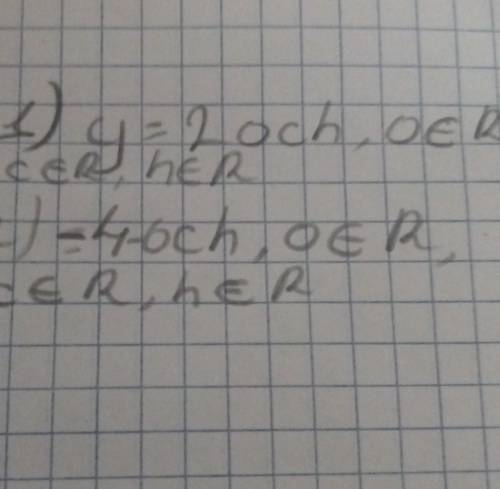 1) y = 2 och, o∈R
c∈R, h∈R
) = 4-och, o∈R,
c∈R, h∈R